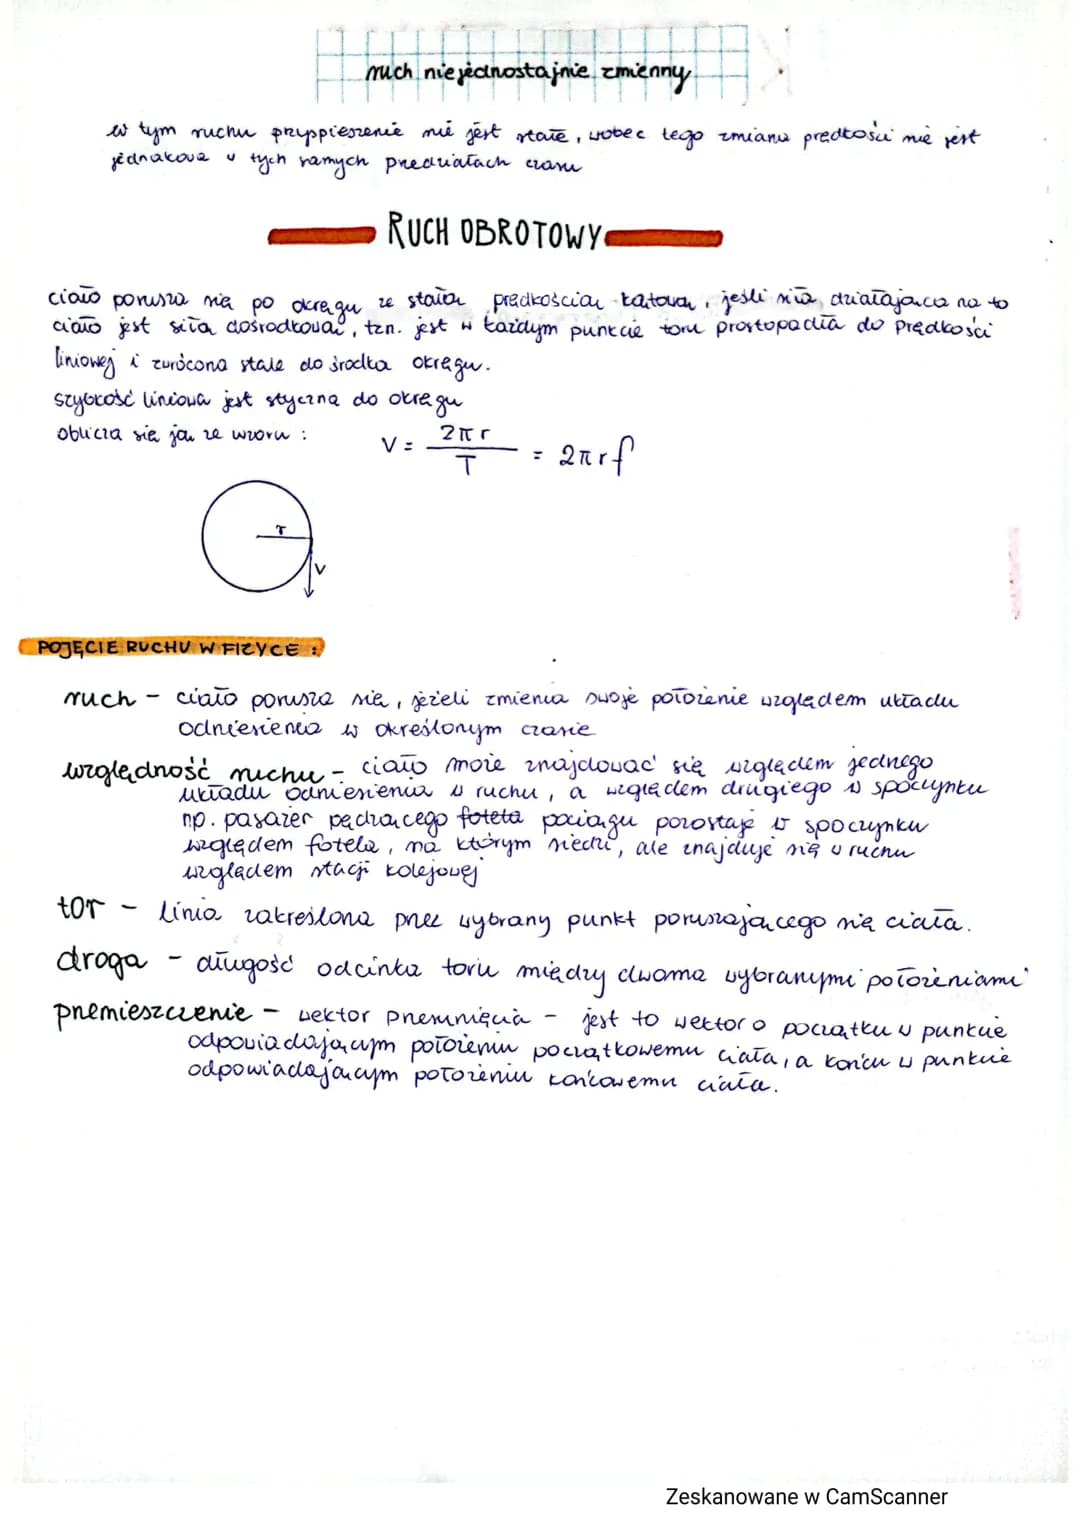 ruch niejednostajnie zmienny
w tym ruchu przyspieszenie nie jest stałe, wobec tego zmiana prędkości nie jest
jednakowa w tych samych przedziałach czasu
RUCH OBROTOWY
ciało porusza się po okręgu ze stałą prędkością kątową, jeśli siła działająca na to
ciało jest siłą dośrodkową, tzn. jest w każdym punkcie toru prostopadła do prędkości
liniowej i zwrócona stale do środka okręgu.
szybkość liniowa jest styczna do okręgu
oblicza się ją ze wzoru : V = 2πr / T = 2πrf
r
V
POJĘCIE RUCHU W FIZYCE :
ruch - ciało porusza się, jeżeli zmienia swoje położenie względem układu
odniesienia w określonym czasie
względność ruchu - ciało może znajdować się względem jednego
układu odniesienia w ruchu, a względem drugiego w spoczynku
np. pasażer pędzącego fotela pociągu pozostaje w spoczynku
względem fotela, na którym siedzi, ale znajduje się w ruchu
względem stacji kolejowej
tor - linia zakreślona przez wybrany punkt poruszającego się ciała.
droga - długość odcinka toru między dwoma wybranymi położeniami
przemieszczenie - wektor przesunięcia - jest to wektor o początku w punkcie
odpowiadającym położeniu początkowemu ciała, a końcu w punkcie
odpowiadającym położeniu końcowemu ciała.
Zeskanowane w CamScanner